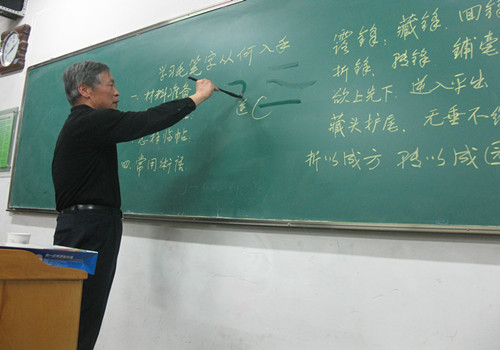 学习毛笔字从何入手
一. 材料准备
怎样临帖
四. 常用术语
露锋、藏锋、回锋
折锋、转锋、铺毫
欲上先下、逆入平出
藏头护尾、无垂不缩
折以成方 转以成圆